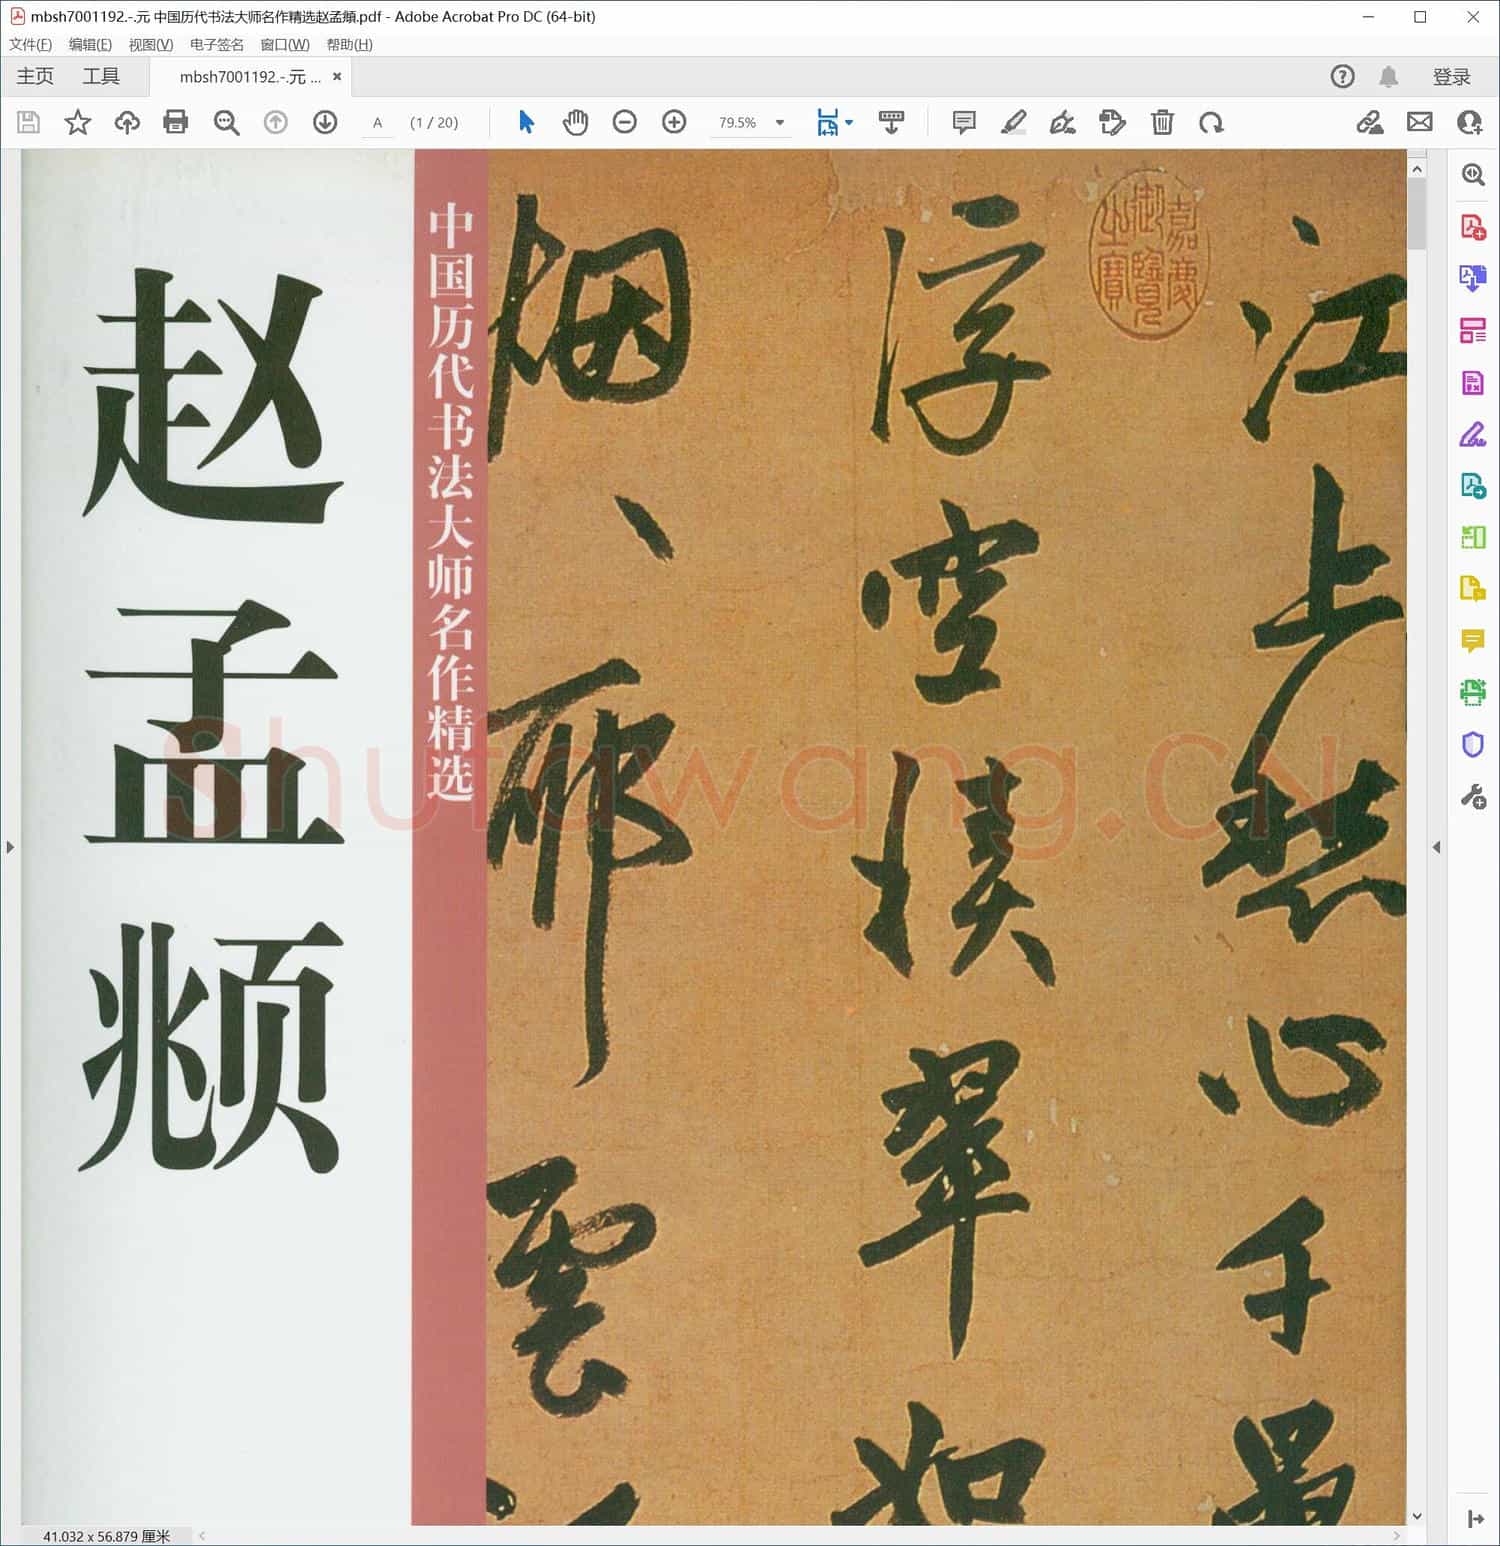 mbsh7001192.-.元 中国历代书法大师名作精选赵孟頫.pdf - Adobe Acrobat Pro DC (64-bit)
文件(F) 编辑(E) 视图(V) 电子签名 窗口(W) 帮助(H)
主页 工具 mbsh7001192.-.元 ... × 登录
A (1 / 20) 79.5%
赵孟頫
中国历代书法大师名作精选
嘉慶御覽之寶
江上愁心千疊
浮空積翠如
烟、耶雲
Shufawang.CN
41.032 x 56.879 厘米